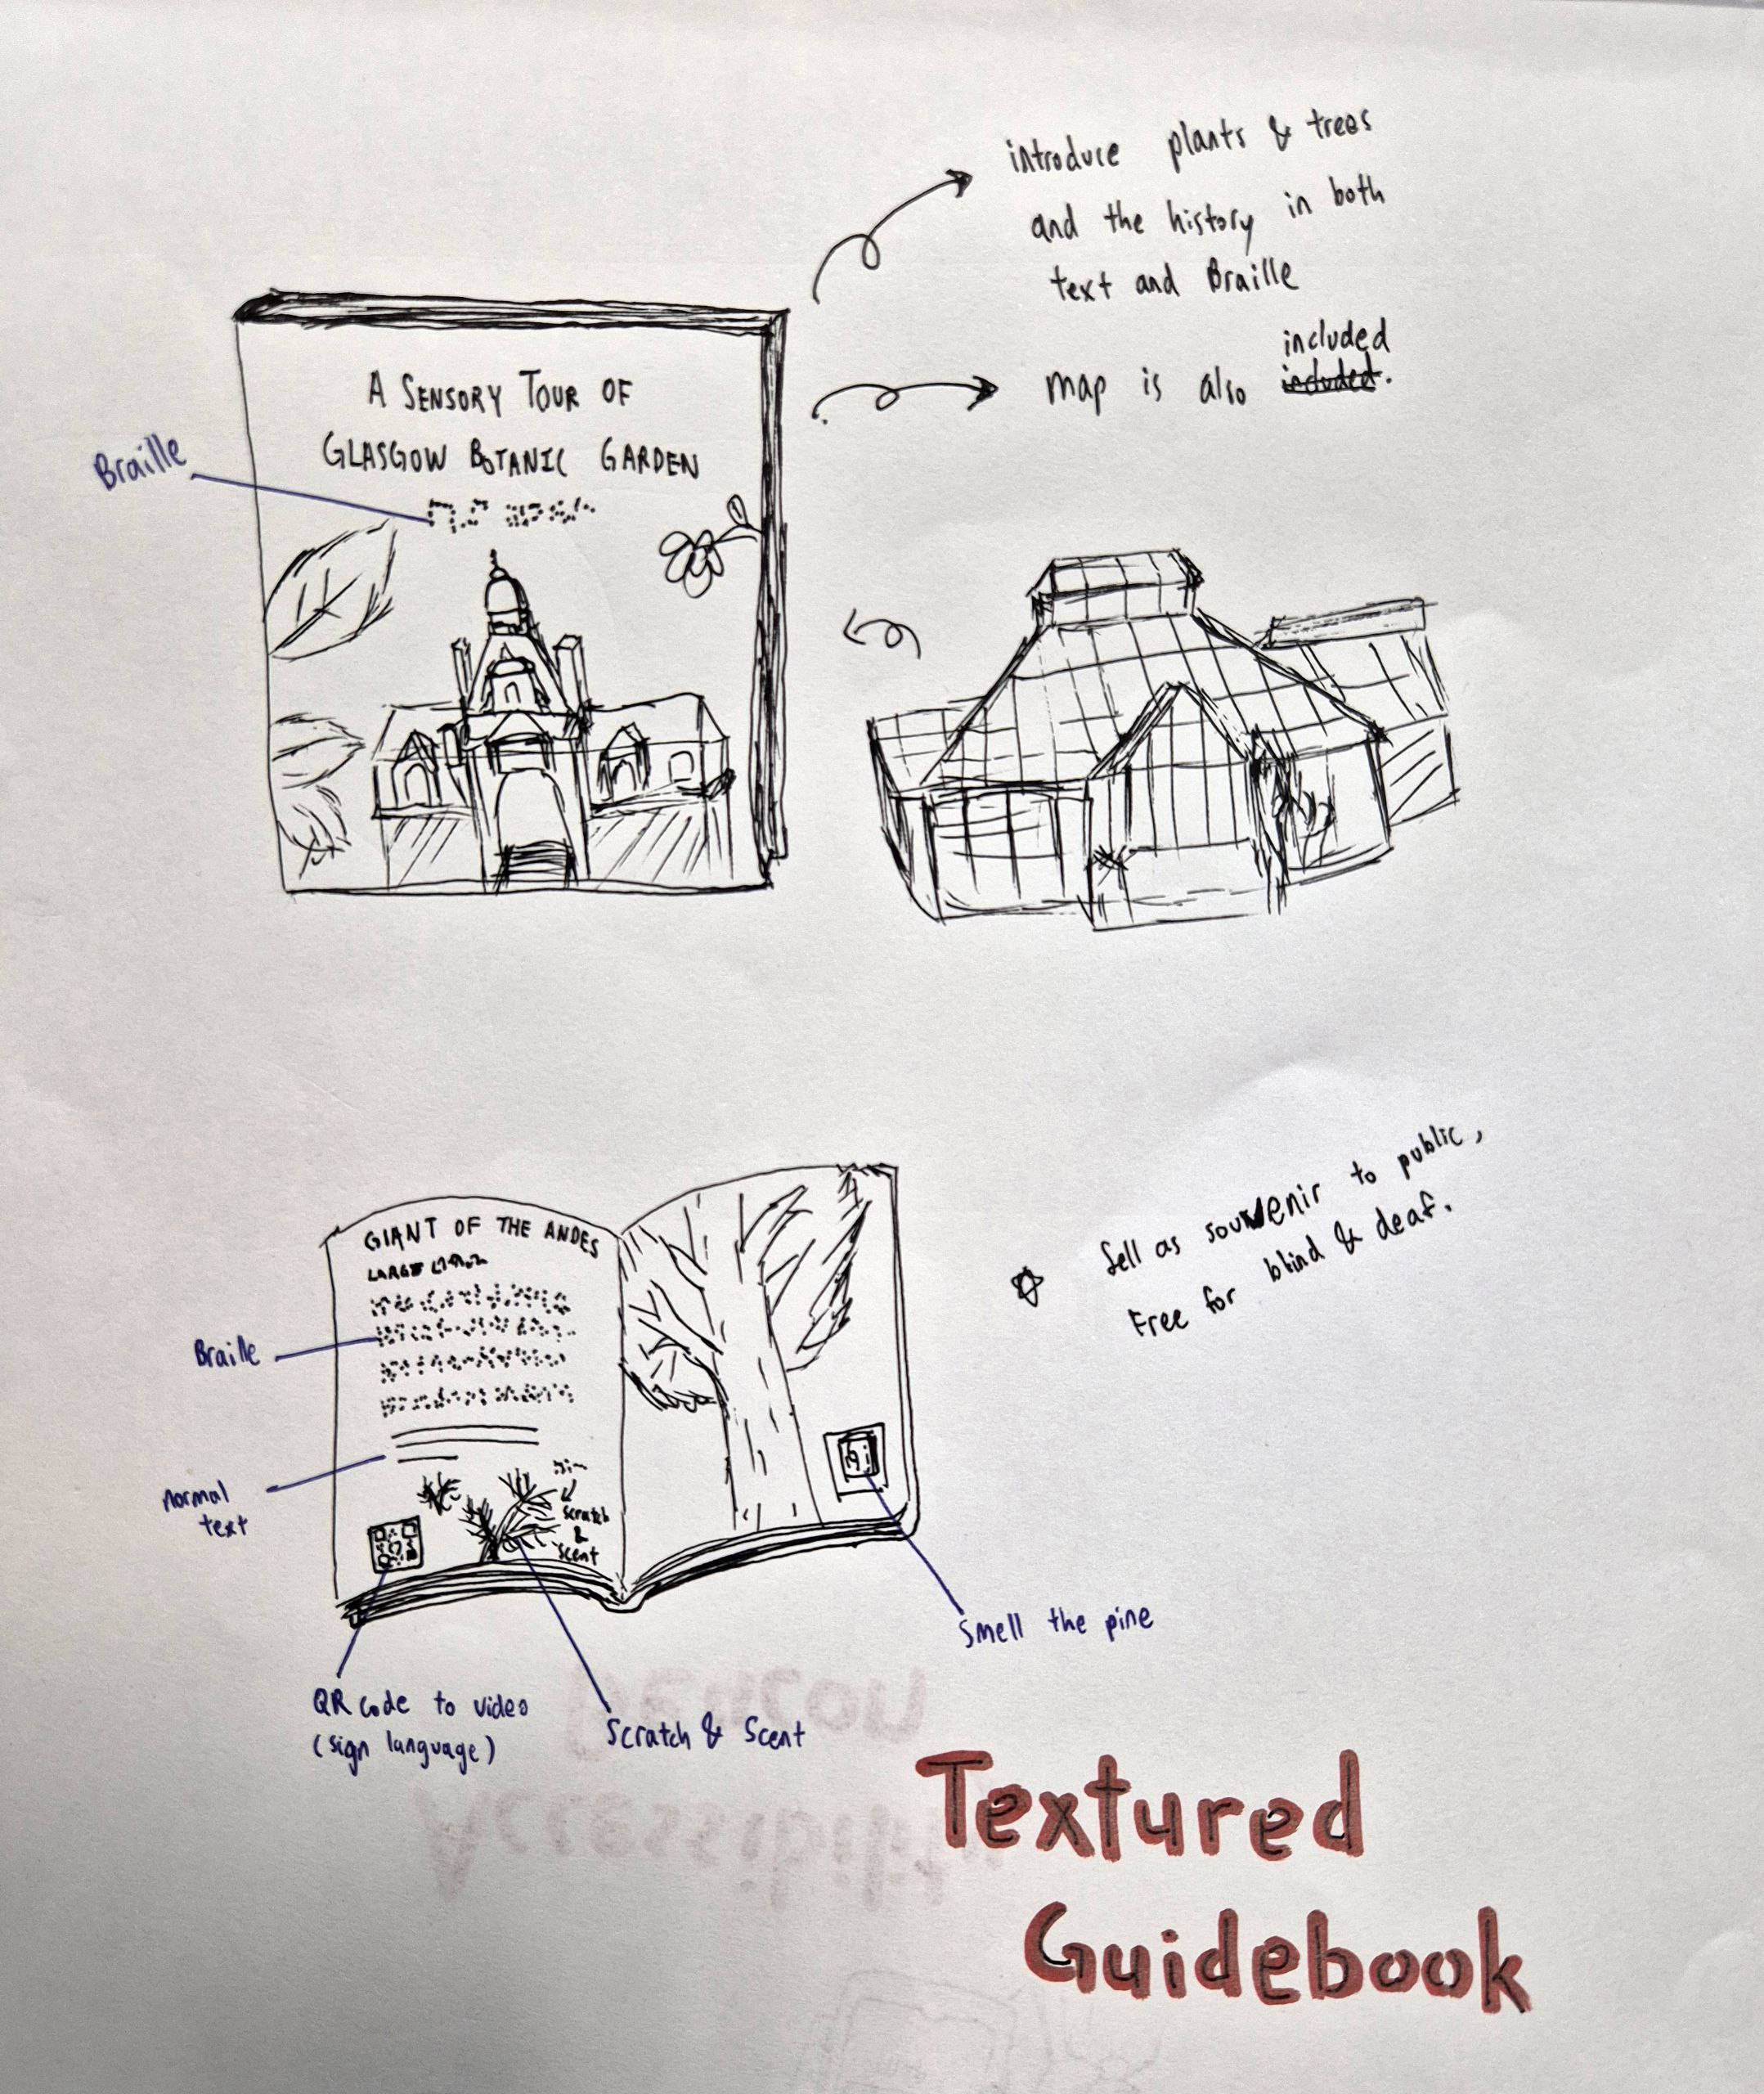 introduce plants & trees
and the history in both
text and Braille
map is also included
included.
A SENSORY TOUR OF
GLASGOW BOTANIC GARDEN
Braille
GIANT OF THE ANDES
LARGE
Braille
normal
text
scratch
&
scent
QR code to video
(sign language)
Scratch & Scent
Smell the pine
Sell as souvenir to public,
Free for blind & deaf.
Textured
Guidebook
Accessibility